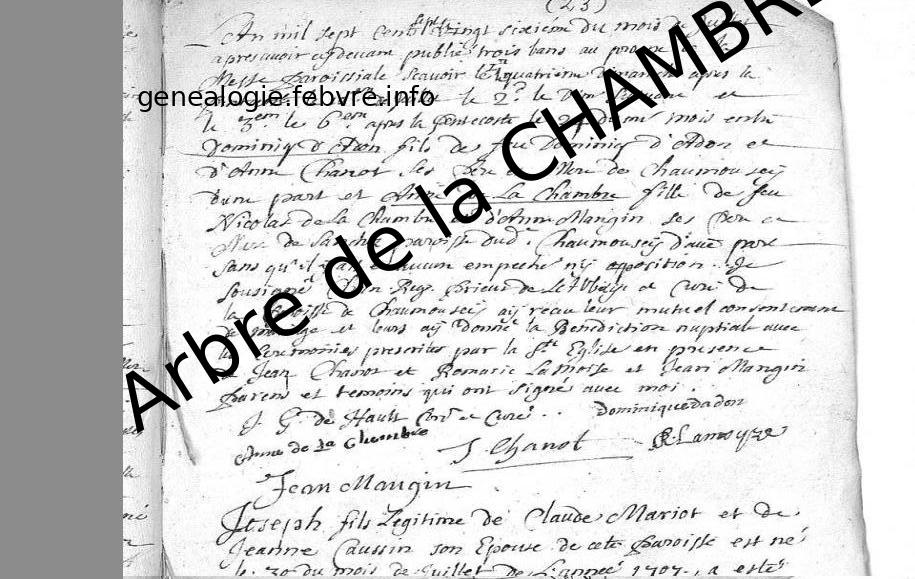 (23)
An mil sept cent sept le vingt sixiém du mois de Juillet
apres avoir cydevant publié trois bans au prone de la
Messe paroissiale scavoir le quatriéme dimanche apres la
genealogie.febvre.info
le 2e. le et
le 3em le 6em apres la pentecoste le mois entre
Dominiq d'Adon fils de feu Dominiq d'Adon et
d'Anne Chanot ses Pere et Mere de Chaumousey
d'une part et Anne de La Chambre fille de feu
Nicolas de la Chambre et d'Anne Mangin ses Pere et
Mere de Sanchey paroisse dud. Chaumousey d'autre part
sans qu'il y ait eu aucun empeché ny opposition. Je
sousigné Chan. Reg. Prieur de l'Abbaye et Curé de
la Paroisse de Chaumousey aÿ receu leur mutuel consentement
de mariage et leurs aÿ donné la Benediction nuptial avec
les ceremonies prescrites par la Ste Eglise en presence
de Jean Chanot et Romaric Lamosse et Jean Mangin
parens et temoins qui ont signé avec moi.
J. G. de Hault et curé.. Dominique dadon
Anne de La Chambre J Chanot R. Lamoyze
Jean Mangin
Arbre de la CHAMBRE
Joseph fils Legitime de Claude Mariot et de
Jeanne Caussin son Epouse de cete Paroisse est né
le 30 du mois de Juillet de L'année 1707, a esté